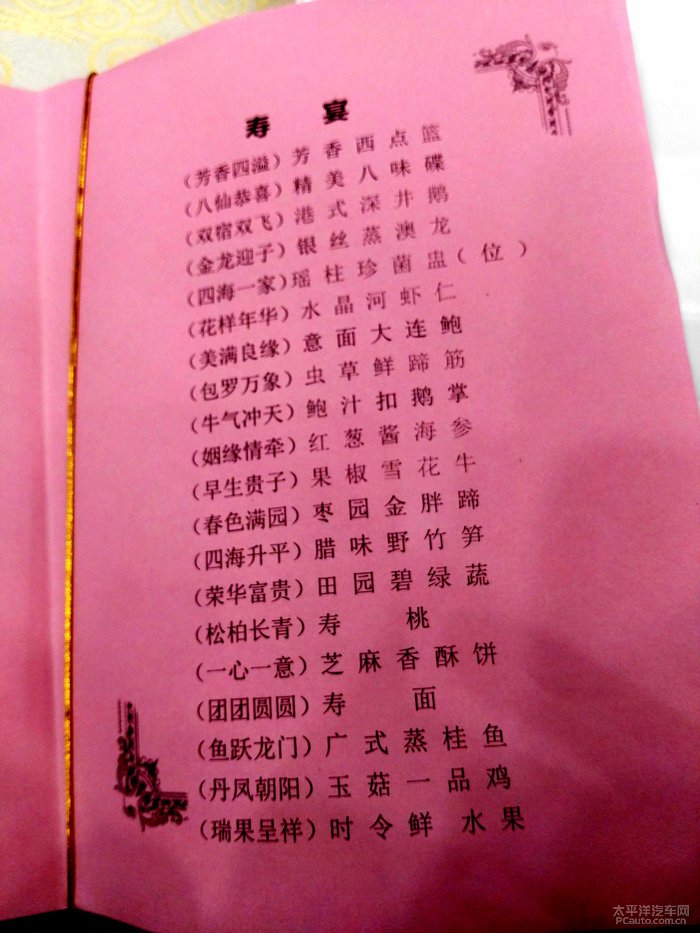 寿 宴
(芳香四溢) 芳香西点篮
(八仙恭喜) 精美八味碟
(双宿双飞) 港式深井鹅
(金龙迎子) 银丝蒸澳龙
(四海一家) 瑶柱珍菌盅(位)
(花样年华) 水晶河虾仁
(美满良缘) 意面大连鲍
(包罗万象) 虫草鲜蹄筋
(牛气冲天) 鲍汁扣鹅掌
(姻缘情牵) 红葱酱海参
(早生贵子) 果椒雪花牛
(春色满园) 枣园金胖蹄
(四海升平) 腊味野竹笋
(荣华富贵) 田园碧绿蔬
(松柏长青) 寿 桃
(一心一意) 芝麻香酥饼
(团团圆圆) 寿 面
(鱼跃龙门) 广式蒸桂鱼
(丹凤朝阳) 玉菇一品鸡
(瑞果呈祥) 时令鲜水果
太平洋汽车网
PCauto.com.cn